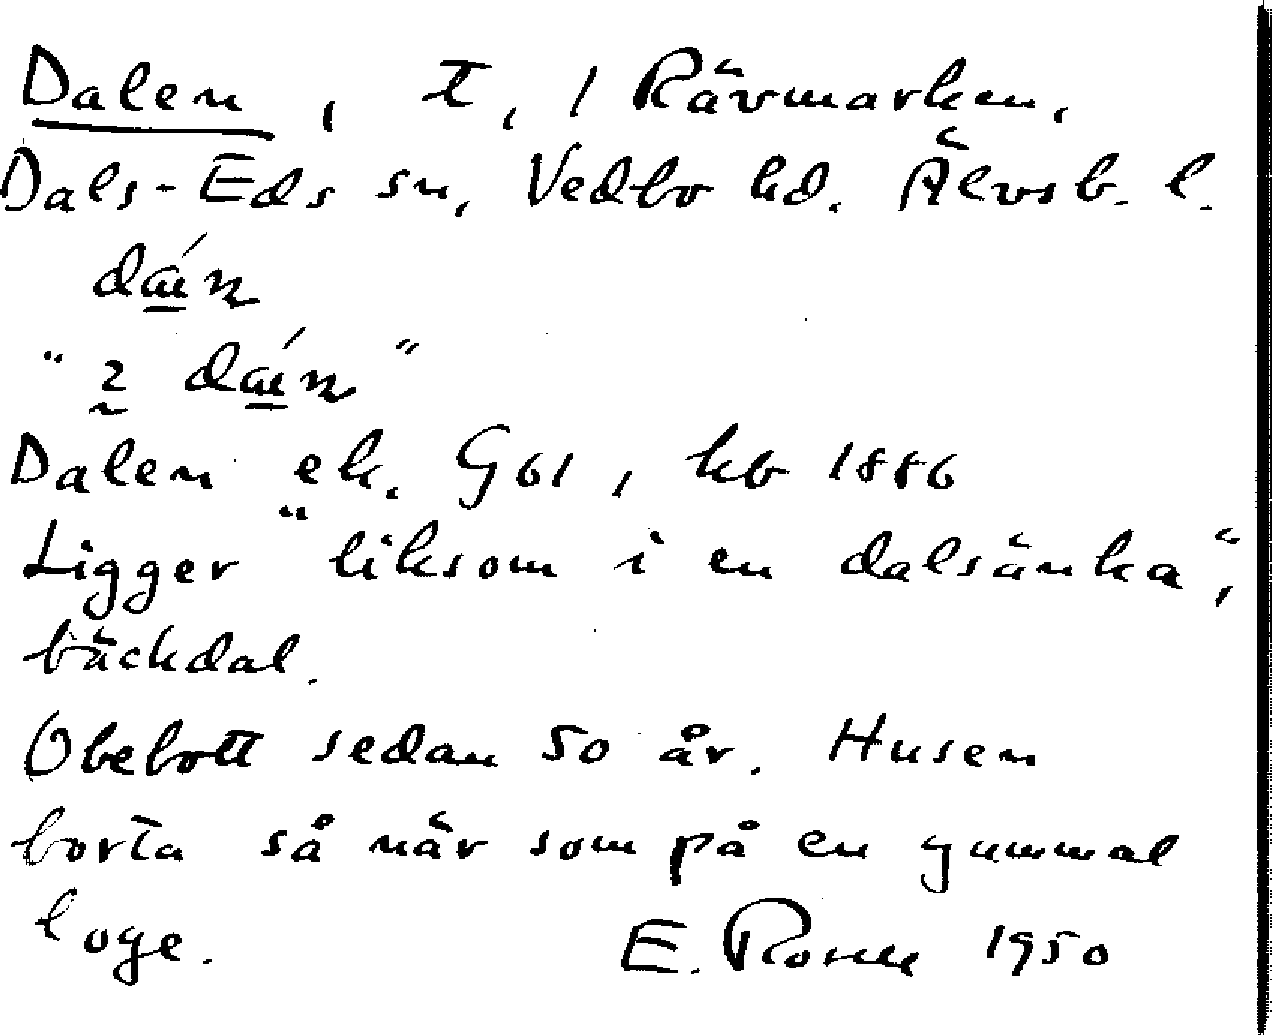 Dalen, t, / Rävmarken,
Dals-Eds sn, Vedbo hd. Älvsb. l.
Dalen ek. G 61, kb 1886
Ligger "liksom i en dalsänka",
bäckdal.
Obebott sedan 50 år. Husen
borta så när som på en gammal
loge. E. Rosell 1950